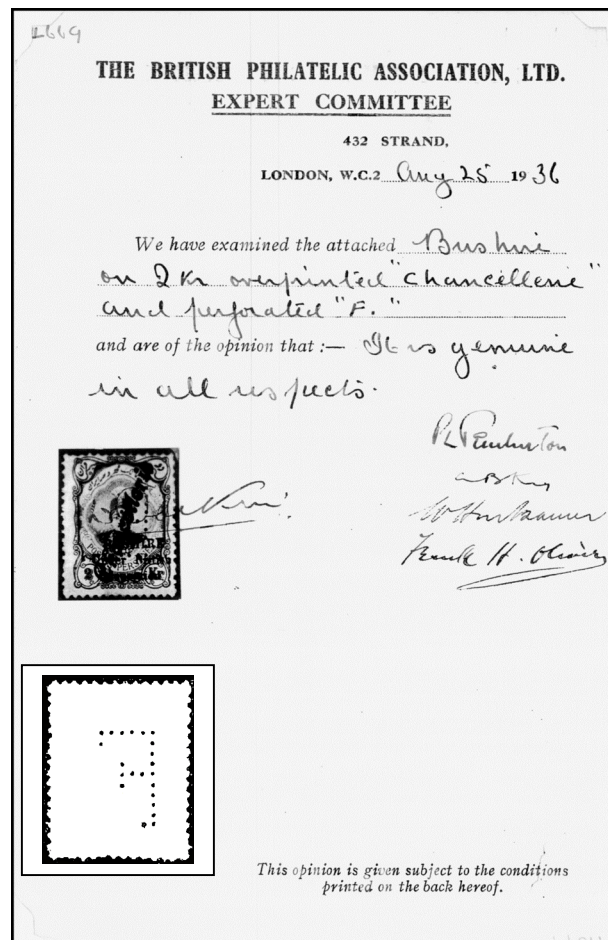 1669
THE BRITISH PHILATELIC ASSOCIATION, LTD.
EXPERT COMMITTEE
432 STRAND,
LONDON, W.C.2 Aug 25 1936
We have examined the attached Bushire
on 2 Kr overprinted "Chancellerie"
and perforated "F."
and are of the opinion that :— It is genuine
in all respects.
Frank H. Oliver
2 Kr
This opinion is given subject to the conditions
printed on the back hereof.